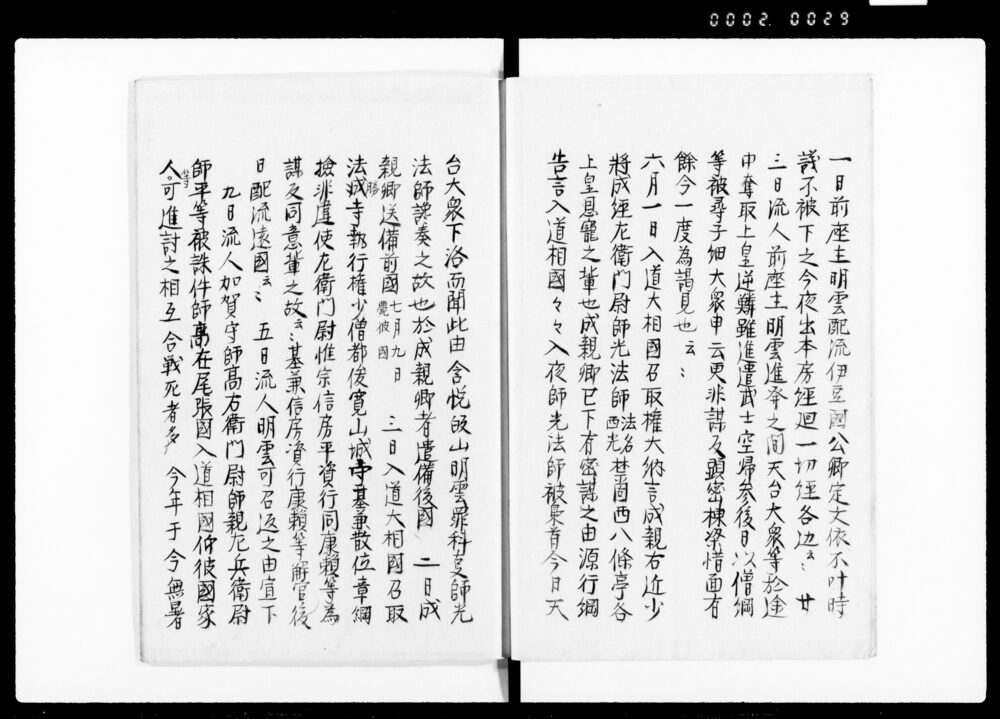 0002.0029
一日前座主明雲配流伊豆國公卿定文依不叶時
議不被下之今夜出本房經廻一切經各辺云〻廿
三日流人前座主明雲進發之間天台大衆等於途
中奪取上皇逆鱗雖進遣武士空帰参後日以僧綱
等被尋子細大衆申云更非謀反顕密棟梁惜面有
餘今一度為謁見也云〻
六月一日入道大相國召取権大納言成親右近少
將成經左衛門尉師光法師法名西光禁西八條亭各
上皇恩寵之輩也成親卿已下有密謀之由源行綱
告言入道相國々々入夜師光法師被梟首今日天
台大衆下洛而聞此由含悦皈山明雲罪科是師光
法師讒奏之故也於成親卿者遣備後國 二日成
親卿送備前國七月九日薨彼國 三日入道大相國召取
法勝寺執行権少僧都俊寛山城守基兼散位章綱
撿非違使左衛門尉惟宗信房平資行同康賴等為
謀反同意輩之故云〻基兼信房資行康賴等解官後
日配流遠國云〻 五日流人明雲可召返之由宣下
九日流人加賀守師高右衛門尉師親左兵衛尉
師平等被誅件師高在尾張國入道相國仰彼國家
人等可進討之相互合戰死者多 今年于今無暑